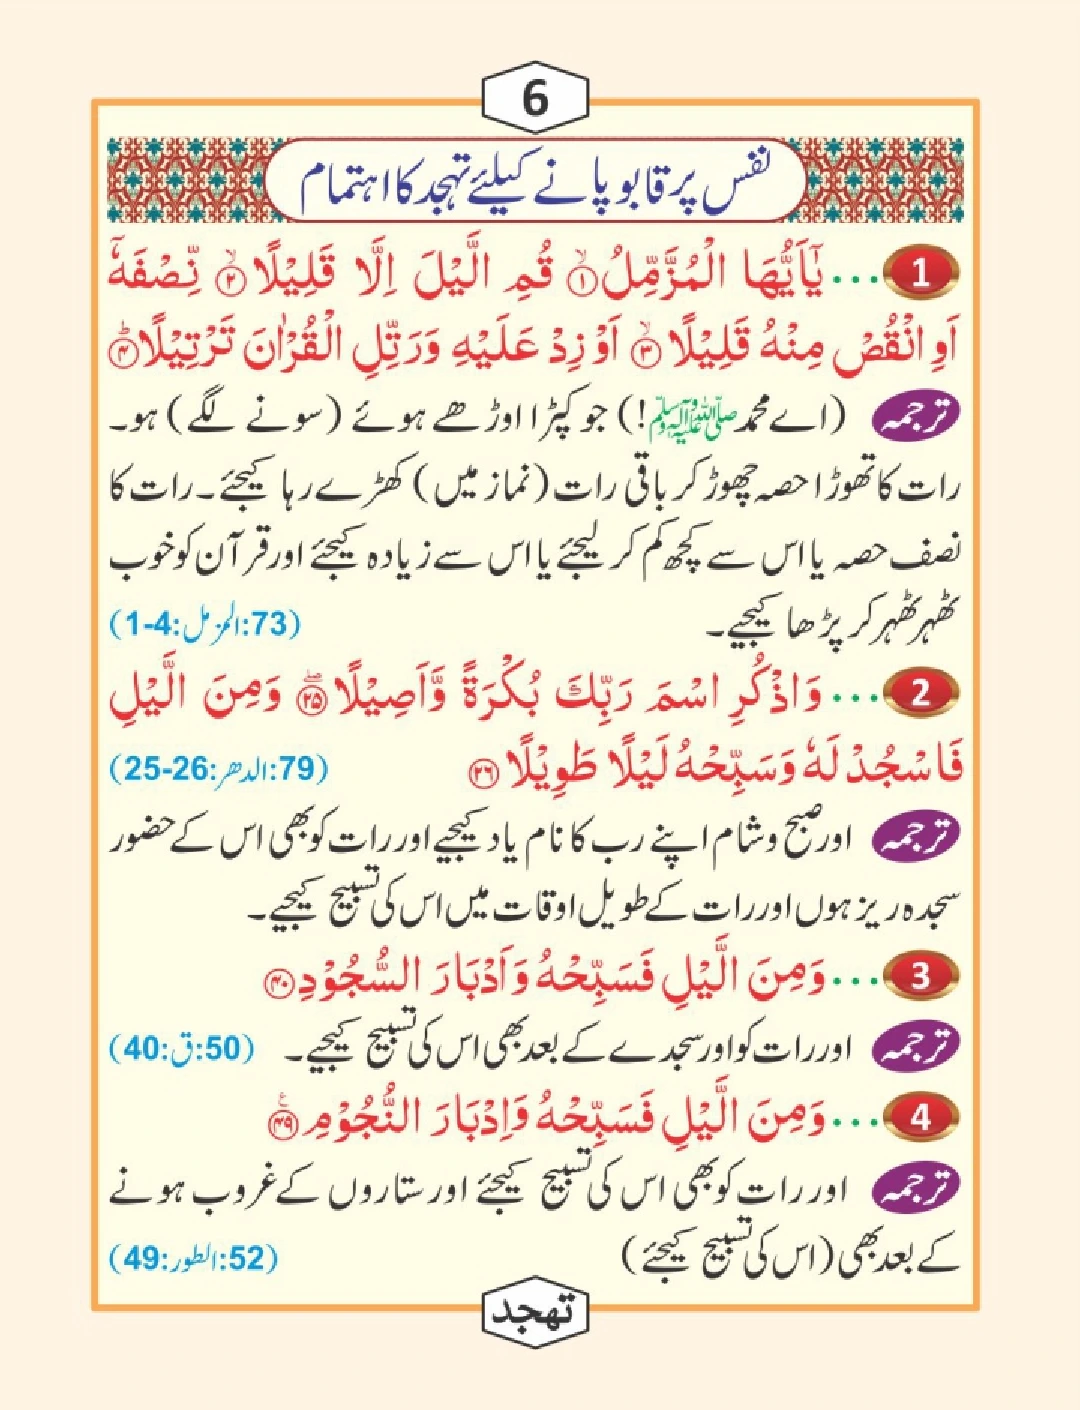 6
نفس پر قابو پانے کیلئے تہجد کا اہتمام
1 ... يٰۤاَيُّهَا الْمُزَّمِّلُ ۙ‏﴿۱﴾ قُمِ الَّيْلَ اِلَّا قَلِيْلًا ۙ‏﴿۲﴾ نِّصْفَهٗۤ
اَوِ انْقُصْ مِنْهُ قَلِيْلًا ۙ‏﴿۳﴾ اَوْ زِدْ عَلَيْهِ وَرَتِّلِ الْقُرْاٰنَ تَرْتِيْلًا ؕ‏﴿۴﴾
ترجمہ (اے محمد ﷺ!) جو کپڑا اوڑھے ہوئے (سونے لگے) ہو۔
رات کا تھوڑا حصہ چھوڑ کر باقی رات (نماز میں) کھڑے رہا کیجئے۔ رات کا
نصف حصہ یا اس سے کچھ کم کر لیجئے یا اس سے زیادہ کیجئے اور قرآن کو خوب
ٹھہر ٹھہر کر پڑھا کیجیے۔ (73:المزمل:4-1)
2 ... وَاذْكُرِ اسْمَ رَبِّكَ بُكْرَةً وَّاَصِيْلًا ۖۚ‏﴿۲۵﴾ وَمِنَ الَّيْلِ
فَاسْجُدْ لَهٗ وَسَبِّحْهُ لَيْلًا طَوِيْلًا ﴿۲۶﴾ (79:الدھر:26-25)
ترجمہ اور صبح و شام اپنے رب کا نام یاد کیجیے اور رات کو بھی اس کے حضور
سجدہ ریز ہوں اور رات کے طویل اوقات میں اس کی تسبیح کیجیے۔
3 ... وَمِنَ الَّيْلِ فَسَبِّحْهُ وَاَدْبَارَ السُّجُوْدِ ﴿۴۰﴾
ترجمہ اور رات کو اور سجدے کے بعد بھی اس کی تسبیح کیجیے۔ (50:ق:40)
4 ... وَمِنَ الَّيْلِ فَسَبِّحْهُ وَاِدْبَارَ النُّجُوْمِ ﴿۴۹﴾ ع
ترجمہ اور رات کو بھی اس کی تسبیح کیجئے اور ستاروں کے غروب ہونے
کے بعد بھی (اس کی تسبیح کیجئے) (52:الطور:49)
تھجد